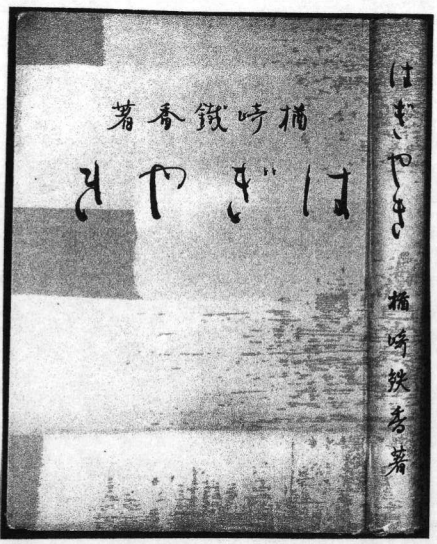 楢崎鐵香著
はぎやき
はぎやき 楢崎鉄香著